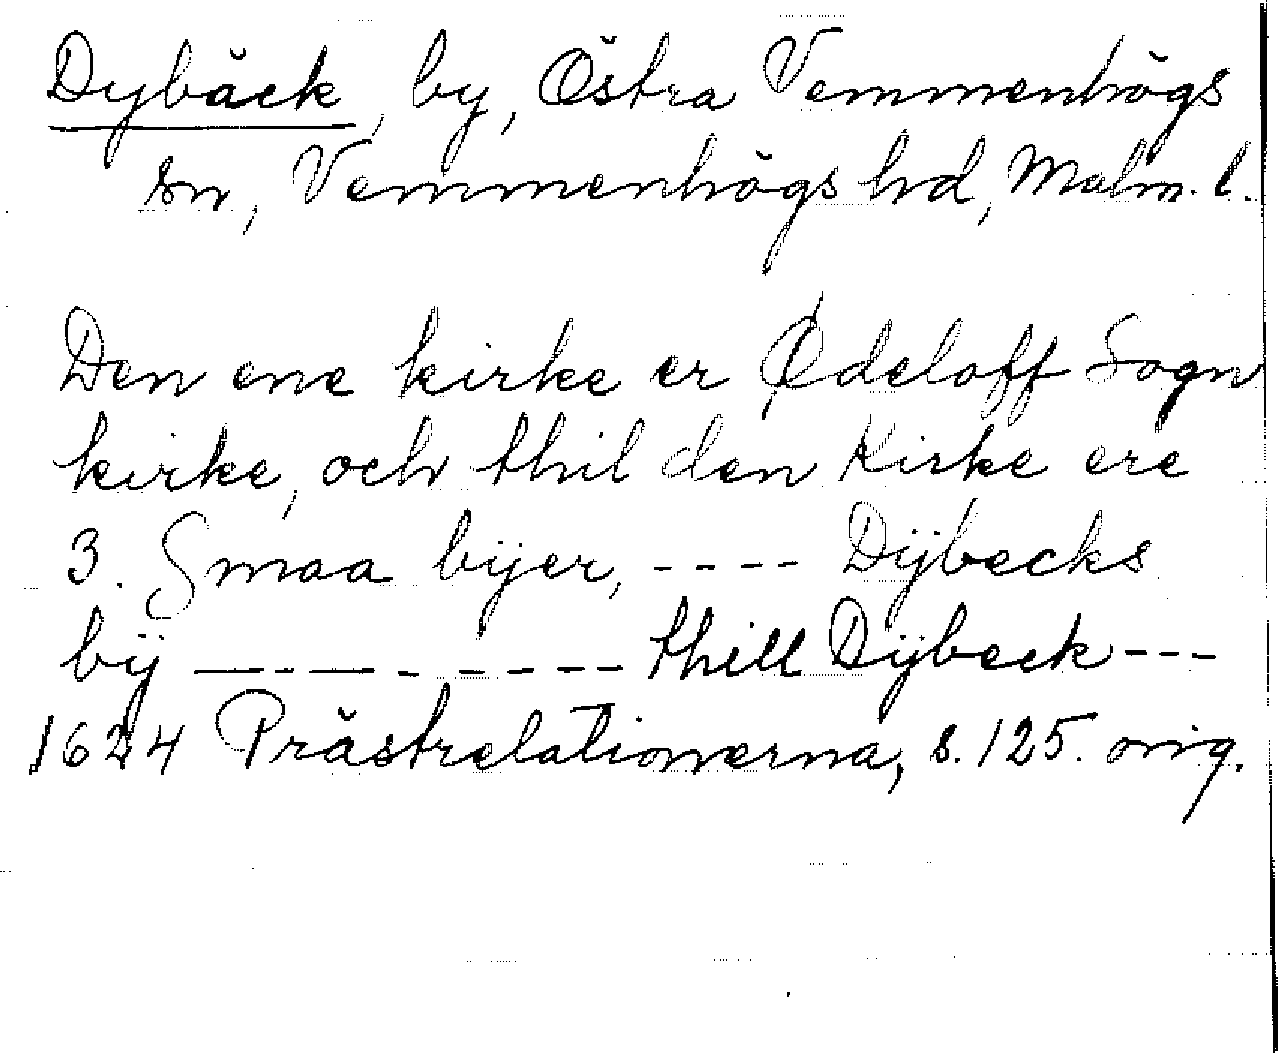 Dybäck, by, Östra Vemmenhögs
sn, Vemmenhögs hd, Malm. l.
Den ene kirke er Ødeloff Sogn
kirke, och thil den Kirke ere
3. Smaa bÿer, ---- Dÿbecks
bÿ ---------- thill Dÿbeck ---
1624 Prästrelationerna, s. 125. orig.